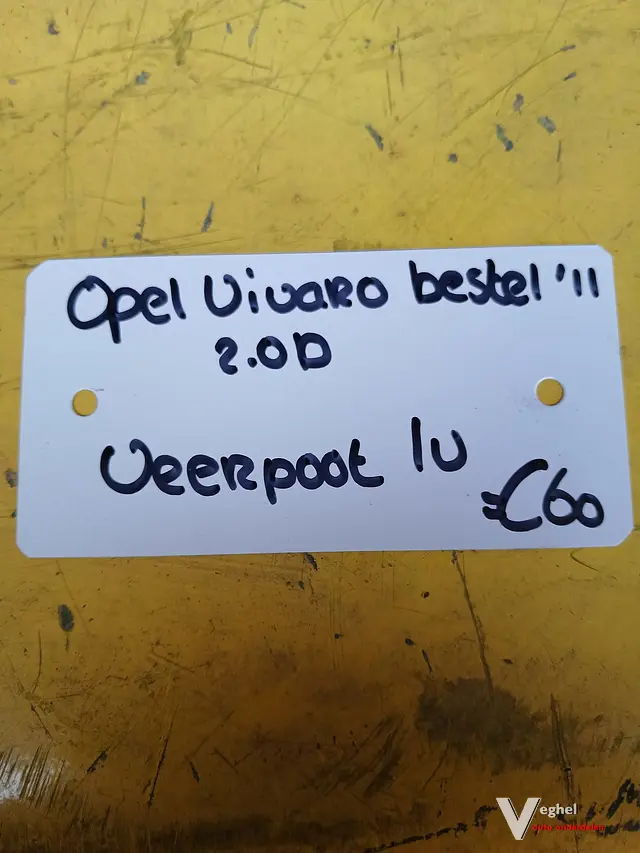 Opel Vivaro bestel '11
2.0D
Veerpoot lv
€60
Veghel
auto onderdelen